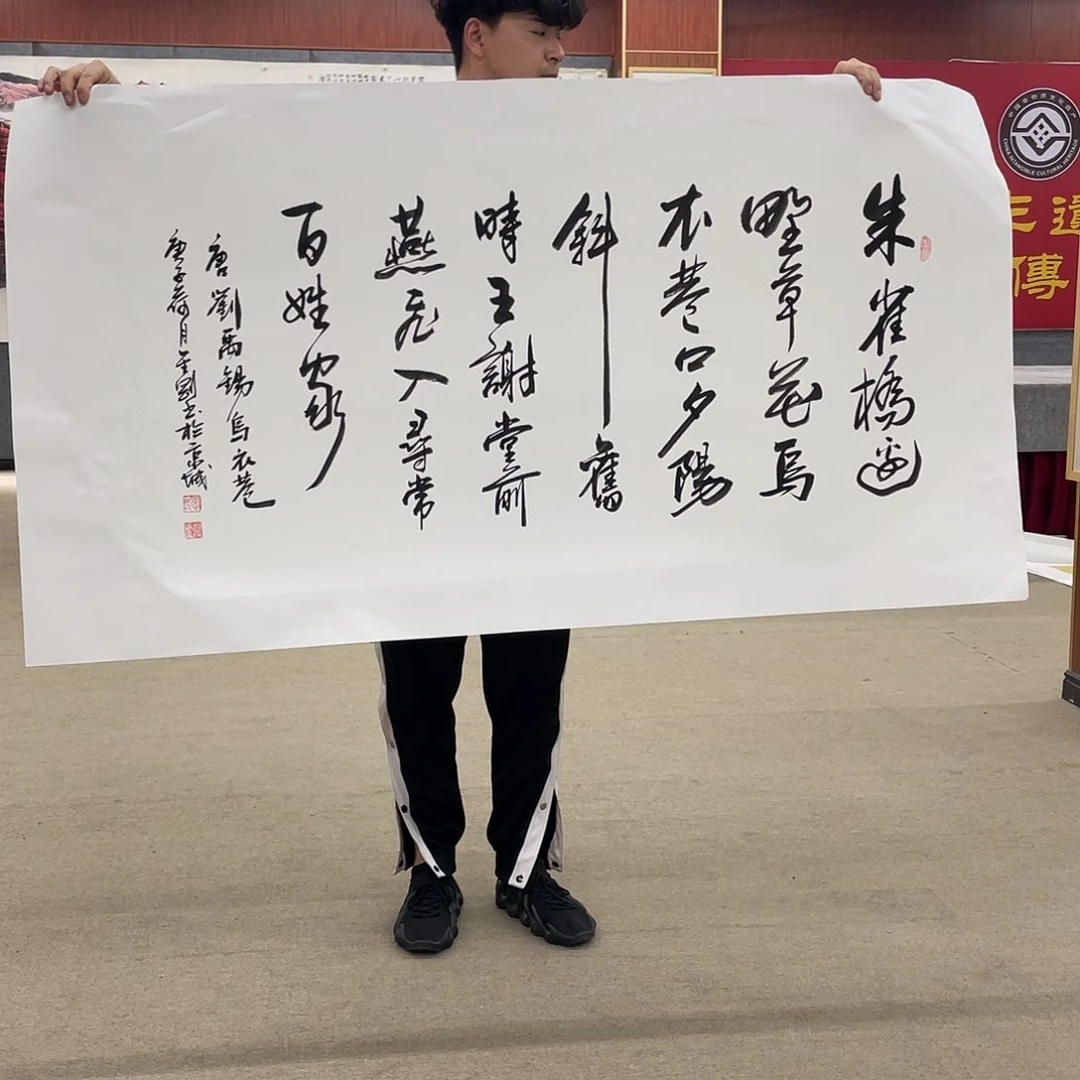 朱雀橋邊
野草花烏
衣巷口夕陽
斜舊
時王謝堂前
燕飛入尋常
百姓家
唐劉禹錫烏衣巷
庚子荷月金剛书於京城
CHINA INTANGIBLE CULTURAL HERITAGE
遺
傳